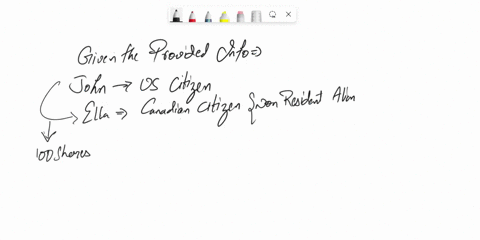 Given the Provided Info ⇒
John → US Citizen
Ella ⇒ Canadian Citizen { Non Resident Alien
100 Shares